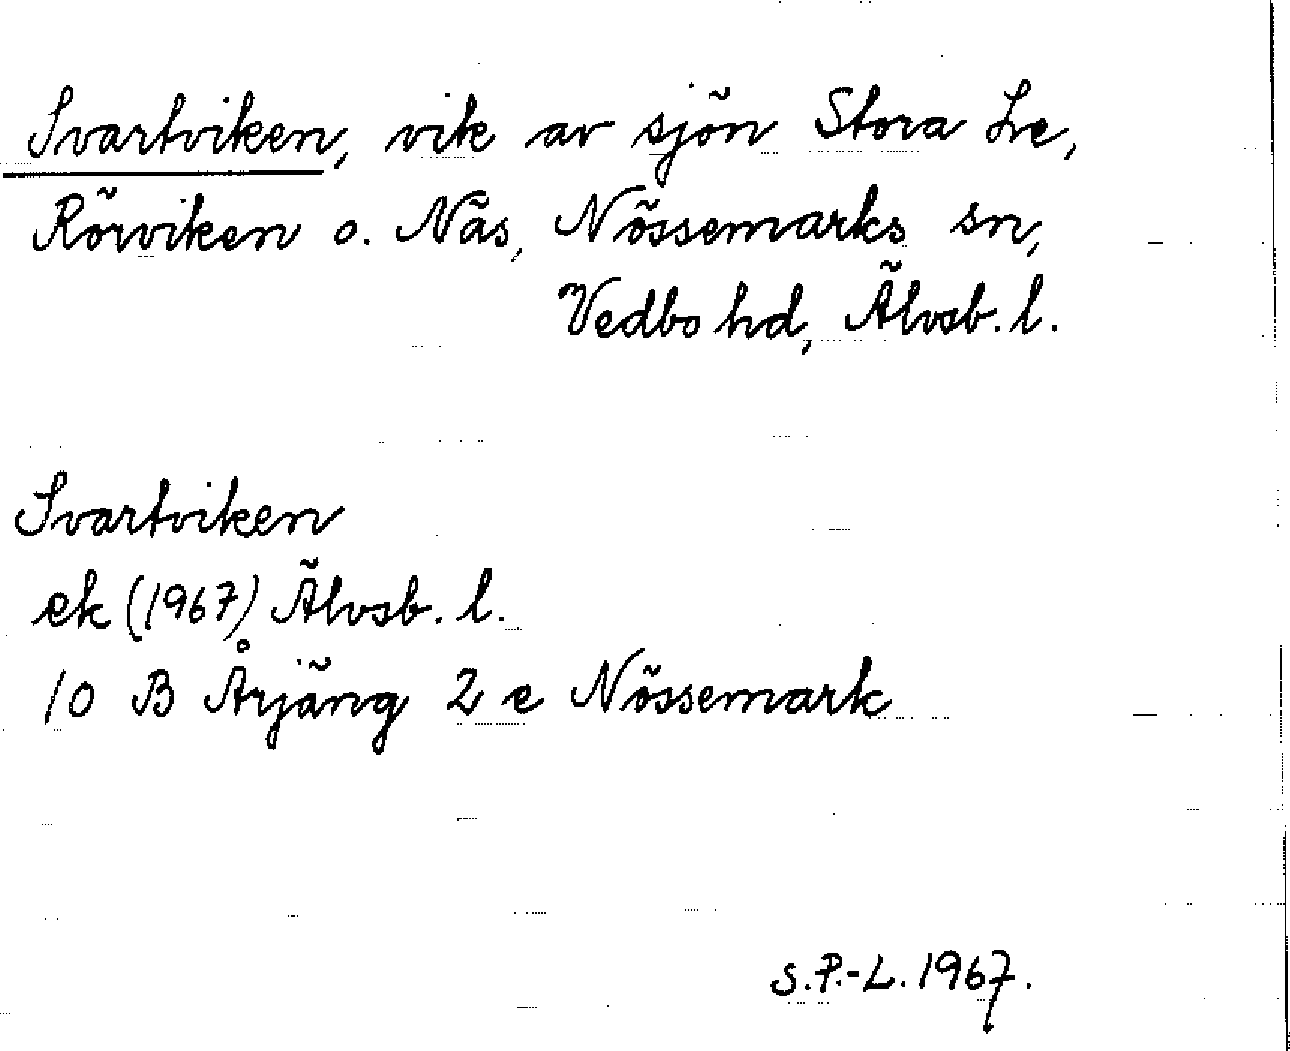 Svartviken, vik av sjön Stora Le,
Rörviken o. Näs, Nössemarks sn,
Vedbo hd, Älvsb. l.
Svartviken
ek (1967) Älvsb. l.
10 B Årjäng 2 e Nössemark
S.P.-L. 1967.